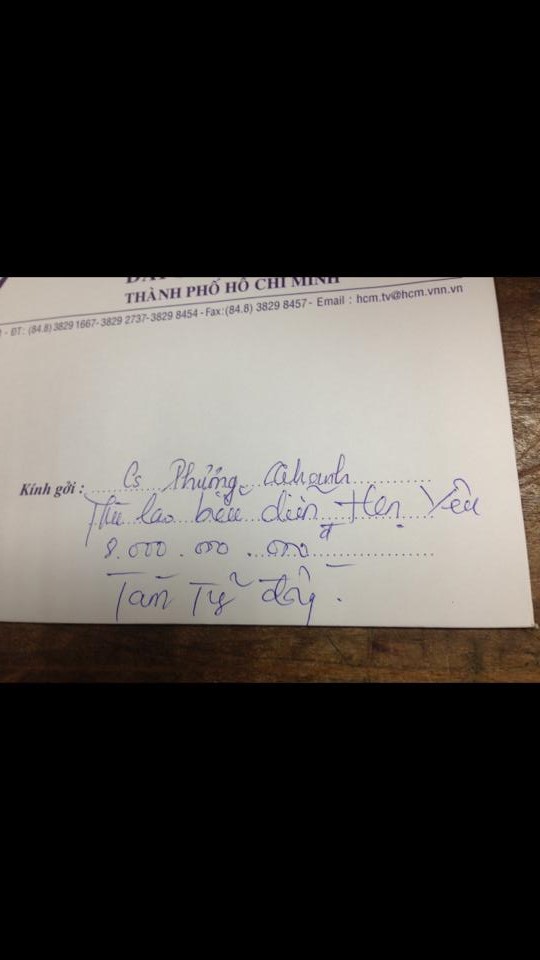 THÀNH PHỐ HỒ CHÍ MINH
- ĐT: (84.8) 3829 1667- 3829 2737-3829 8454 - Fax:(84.8) 3829 8457- Email : hcm.tv@hcm.vnn.vn
Kính gởi : Cs Phương
Thù lao biểu diễn Hẹn Yêu
8.000.000.000đ
Tám Tỷ đồng.